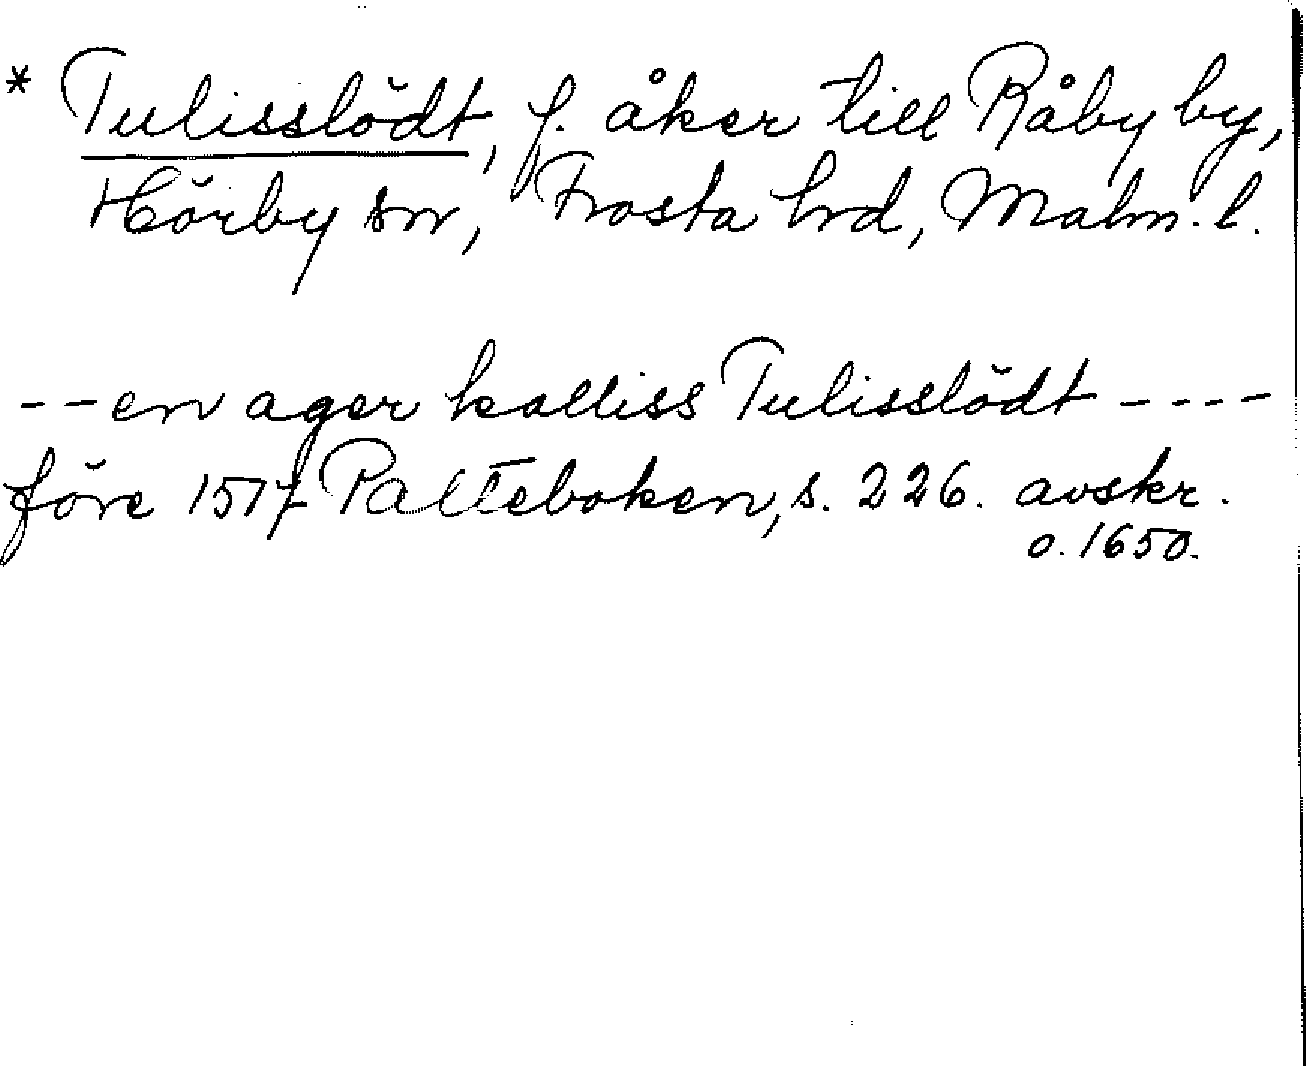 * Tulisslödt, f. åker till Råby by,
Hörby sn, Frosta hd, Malm. l.
-- en ager kalliss Tulisslödt ----
före 1517 Palteboken, s. 226. avskr.
o. 1650.